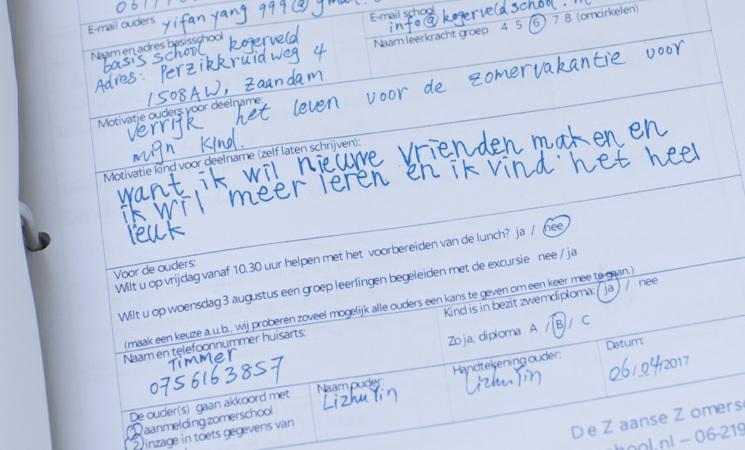 E-mail ouders yifanyang 999@
E-mail school
info@kogerveldschool.
Naam en adres basisschool
basis school kogerveld
Adres: Perzikkruidweg 4
1508AW, Zaandam
Naam leerkracht groep 4 5 6 7 8 (omcirkelen)
Motivatie ouders voor deelname:
Verrijk het leven voor de zomervakantie voor
mijn kind.
Motivatie kind voor deelname (zelf laten schrijven):
want ik wil nieuwe vrienden maken en
ik wil meer leren en ik vind het heel
leuk
Voor de ouders:
Wilt u op vrijdag vanaf 10.30 uur helpen met het voorbereiden van de lunch? ja / nee
Wilt u op woensdag 3 augustus een groep leerlingen begeleiden met de excursie nee / ja
(maak een keuze a.u.b. wij proberen zoveel mogelijk alle ouders een kans te geven om een keer mee te gaan.)
Naam en telefoonnummer huisarts:
Timmer
0756163857
Kind is in bezit zwemdiploma: ja / nee
Zo ja, diploma A / B / C
De ouder(s) gaan akkoord met
1) aanmelding zomerschool
2) inzage in toets gegevens van
Naam ouder:
Lizhu Yin
Handtekening ouder:
Lizhu Yin
Datum:
06/04/2017
De Zaanse Zomersc
school.nl – 06-219